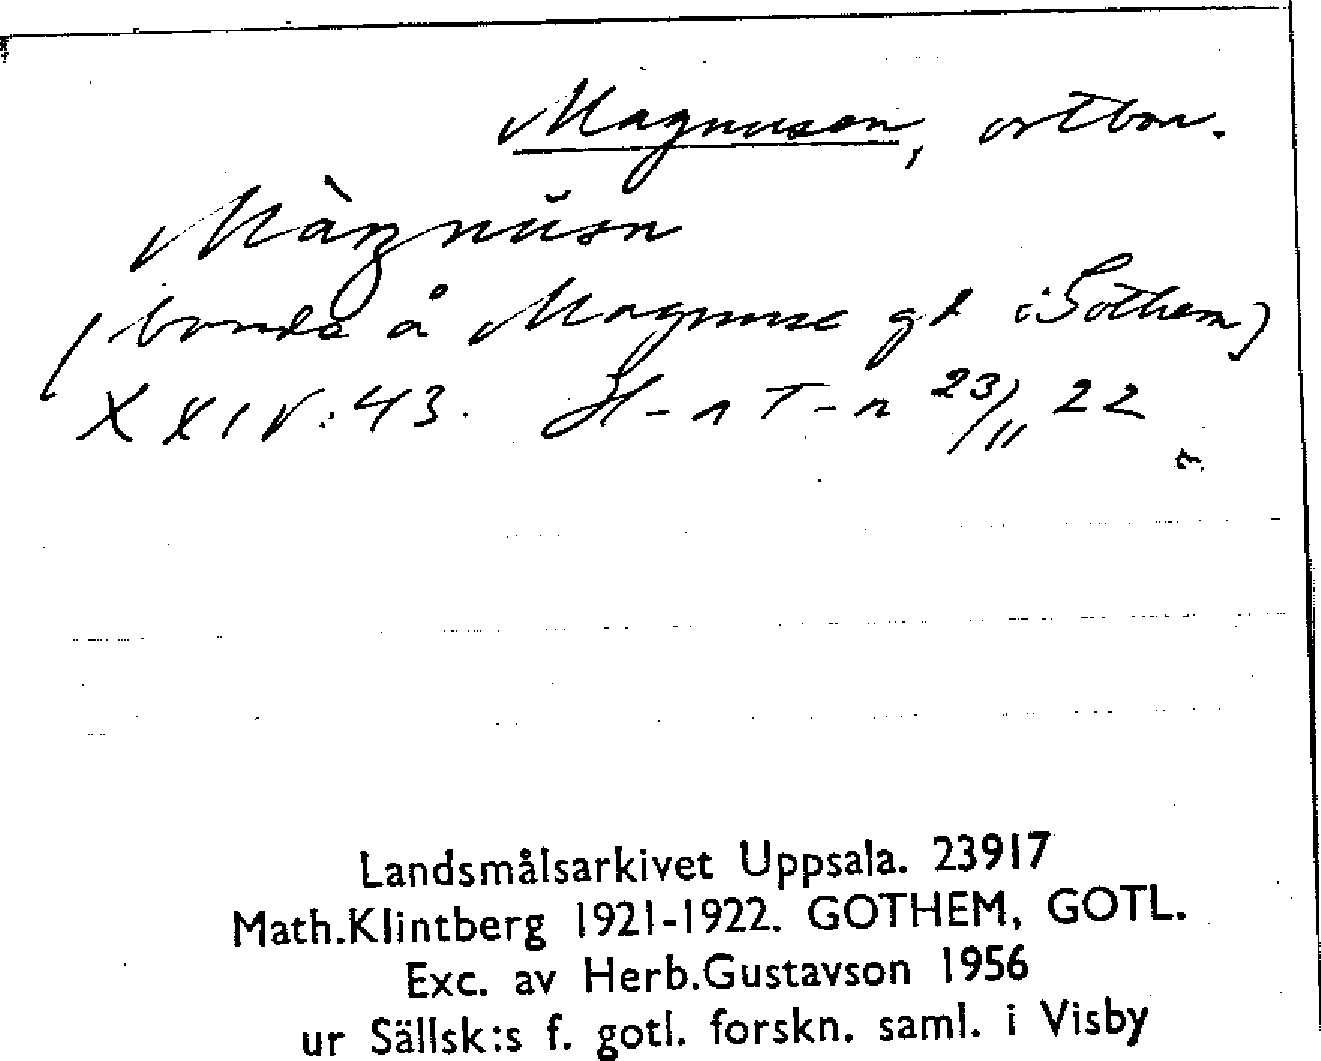 Magnusen, ortbor.
Màgnŭsn
(bonde å Magnuse gd i Gothem)
XXIV:43. H-n T-n 23/11 22
Landsmålsarkivet Uppsala. 23917
Math.Klintberg 1921-1922. GOTHEM, GOTL.
Exc. av Herb.Gustavson 1956
ur Sällsk:s f. gotl. forskn. saml. i Visby